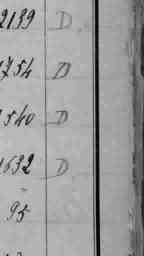 2139 D.
1754 D
1540 D
1632 D.
"
95